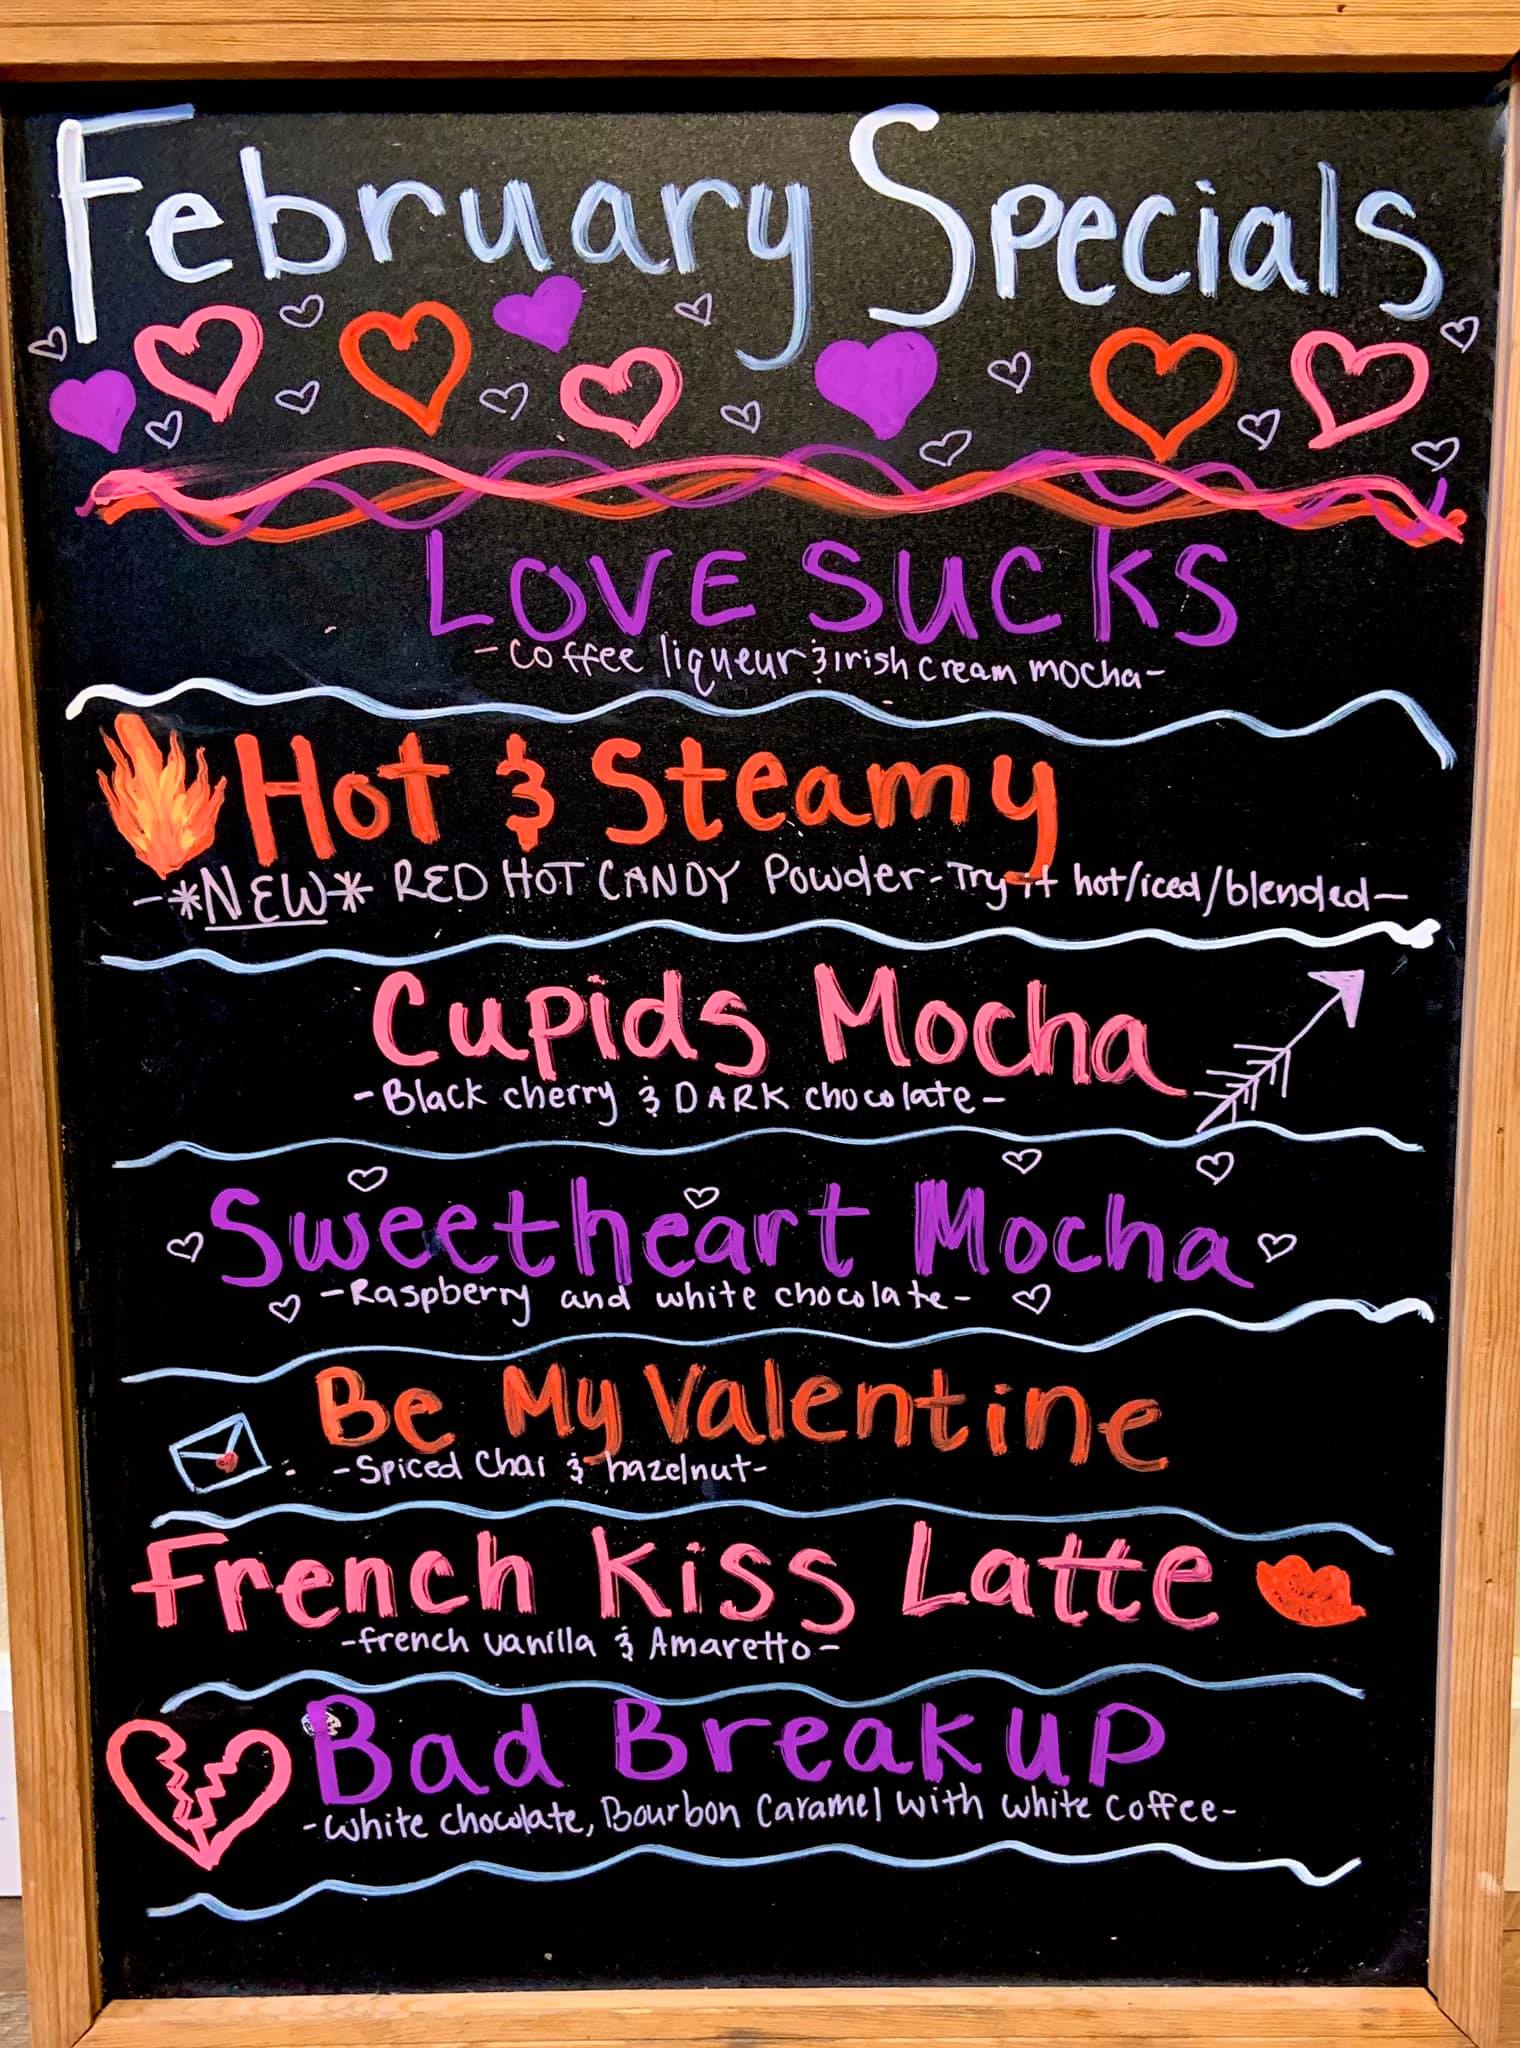 February Specials
LOVE SUCKS
- Coffee liqueur & Irish cream mocha -
Hot & Steamy
- *NEW* RED HOT CANDY Powder - Try it hot/iced/blended -
Cupids Mocha
- Black cherry & DARK chocolate -
Sweetheart Mocha
- Raspberry and white chocolate -
Be My Valentine
- Spiced Chai & hazelnut -
French Kiss Latte
- french vanilla & Amaretto -
Bad Breakup
- White chocolate, Bourbon Caramel with white coffee -